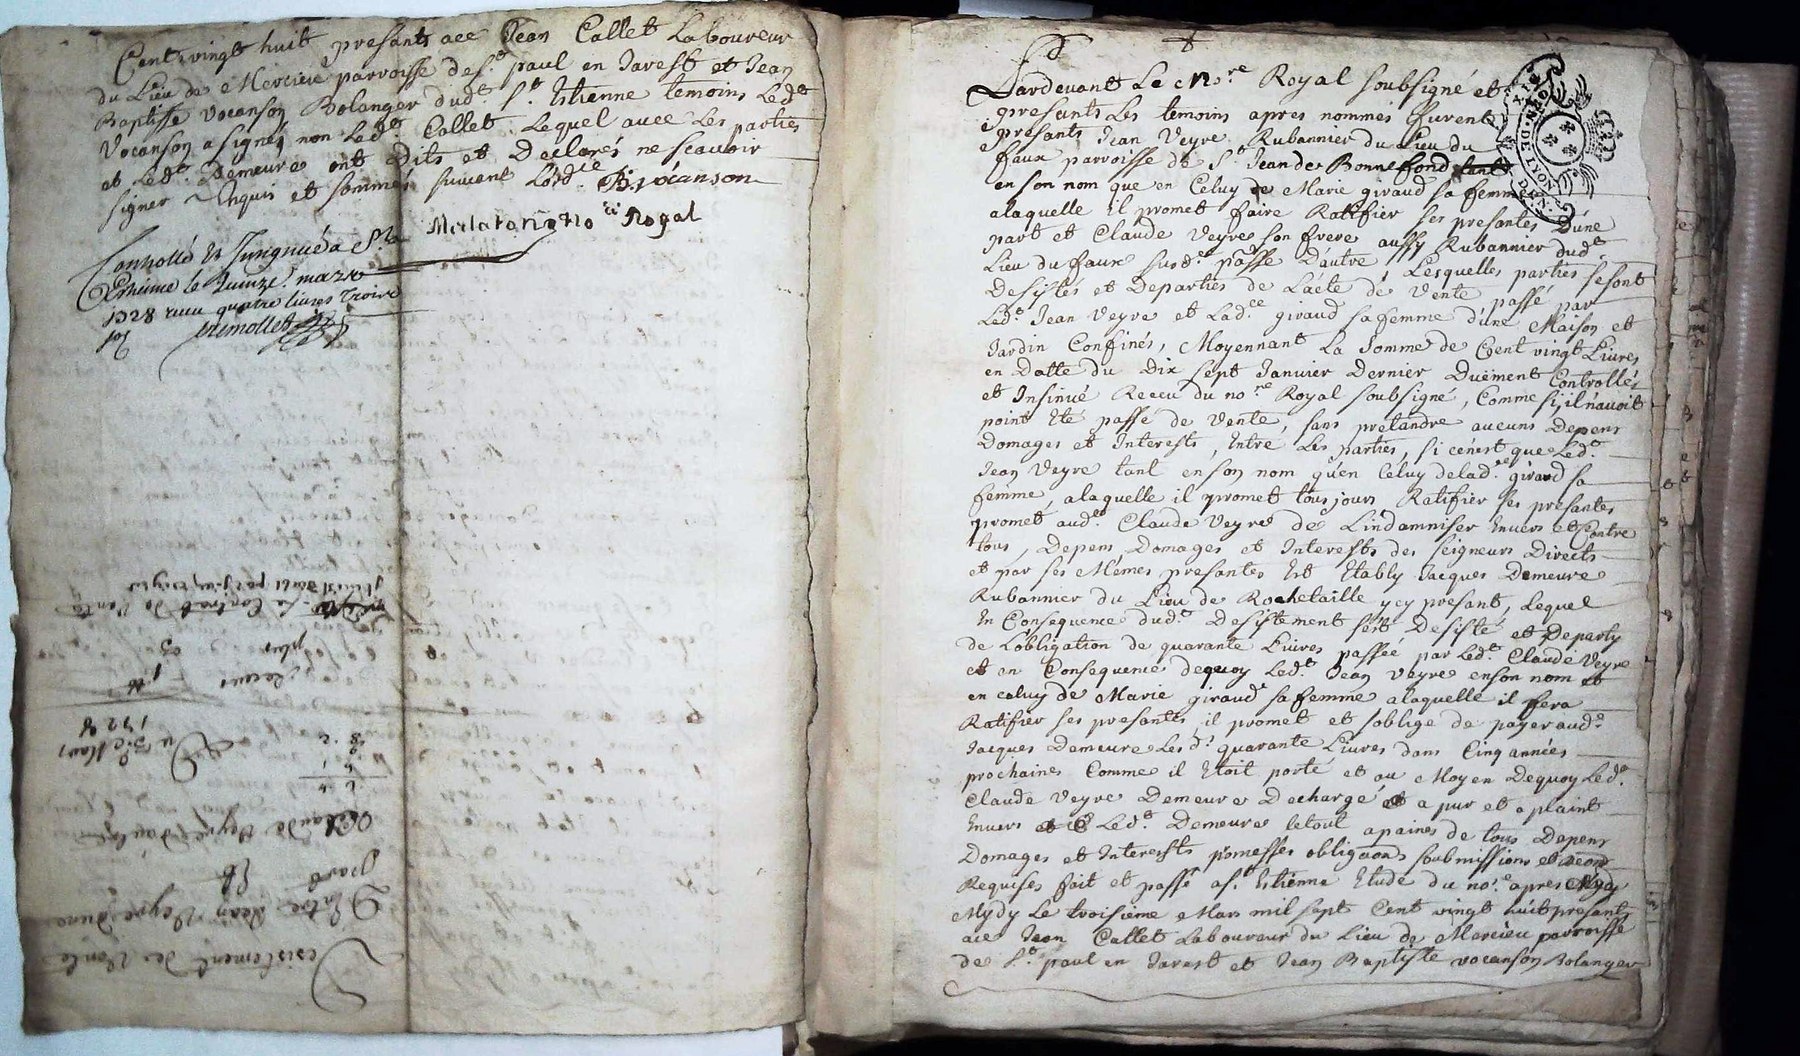 Cent vingt huit presants ace Jean Callet Laboureur
du Lieu de Mercieu parroisse de St. paul en Jarest et Jean
Baptiste vocanson Bolanger dudt. St. Etienne temoins Ledt
vocanson a signé, non Ledt. Callet. Lequel avec Les parties
et Ledt. Demeure ont dits et Declarés ne scavoir
signer Enquis et sommés suivent Lordce. JBvocanson
noe Royal
Controllé Et Insignué a St.
Estienne le quinze. mars
1728 reçu quatre livres
Desistement de Vente
Entre Jean Veyre dune
part Et
Claude Veyre d'autre
Du 3e Mars
1728
Pardevant Le Nore Royal soubsigné et
presents Les temoins apres nommés furent
presants Jean Veyre Rubannier du Lieu du
faux parroisse de St. Jean de Bonnefond tant
en son nom que en Celuy de Marie giraud sa femme
alaquelle il promet faire Ratifier ses presantes D'une
part et Claude Veyre son frere aussy Rubannier dudt
Lieu du faux susdt. passe D'autre, Lesquelles parties se sont
Desistés et Departies de Lacte de Vente passé par
Ledt. Jean Veyre et Ladce. giraud sa femme d'une Maison et
Jardin Confinés, Moyennant La somme de Cent vingt Livres
en Datte du Dix sept Janvier Dernier Duëment Controllés
et Insinué Receu du nore Royal soubsigné, Comme si, il n'avoit
point Eté passé de vente, sans pretandre aucuns Depens
Domages et Interests, Entre Les parties, si cenest que Ledt.
Jean Veyre tant en son nom qu'en Celuy de ladce. giraud sa
femme, alaquelle il promet tousjours Ratifier ses presantes
promet audt. Claude Veyre de Lindamniser Envers et Contre
tous, Depens Domages et Interests des seigneurs Directs
et par ses Mêmes presantes Est Etably Jacques Demeure
Rubannier du Lieu de Rochetaille ycy presant, Lequel
En Consequence dudt. Desistement s'est Desisté et Departy
de Lobligation de quarante Livres passée par Ledt. Claude Veyre
et en Consequence dequoy Ledt. Jean Veyre en son nom et
en celuy de Marie giraud sa femme alaquelle il fera
Ratifier ses presantes il promet et soblige de payer audt.
Jacques Demeure Lesdt. quarante Livres dans Cinq années
prochaines Comme il Etoit porté et au Moyen Dequoy Ledt.
Claude Veyre Demeure Dechargé et a pur et a plaint
Envers Ledt. Demeure letout apaines de tous Depens
Domages et Interests promesses obligaons soubmissions et
Requises fait et passé a St. Etienne Etude du noe. apres Mydy
Mydy Le troisième Mars mil sept Cent vingt huit presants
ace Jean Callet Laboureur du Lieu de Mercieu parroisse
de St. paul en Jarest et Jean Baptiste vocanson Bolanger
GEN. DE LYON